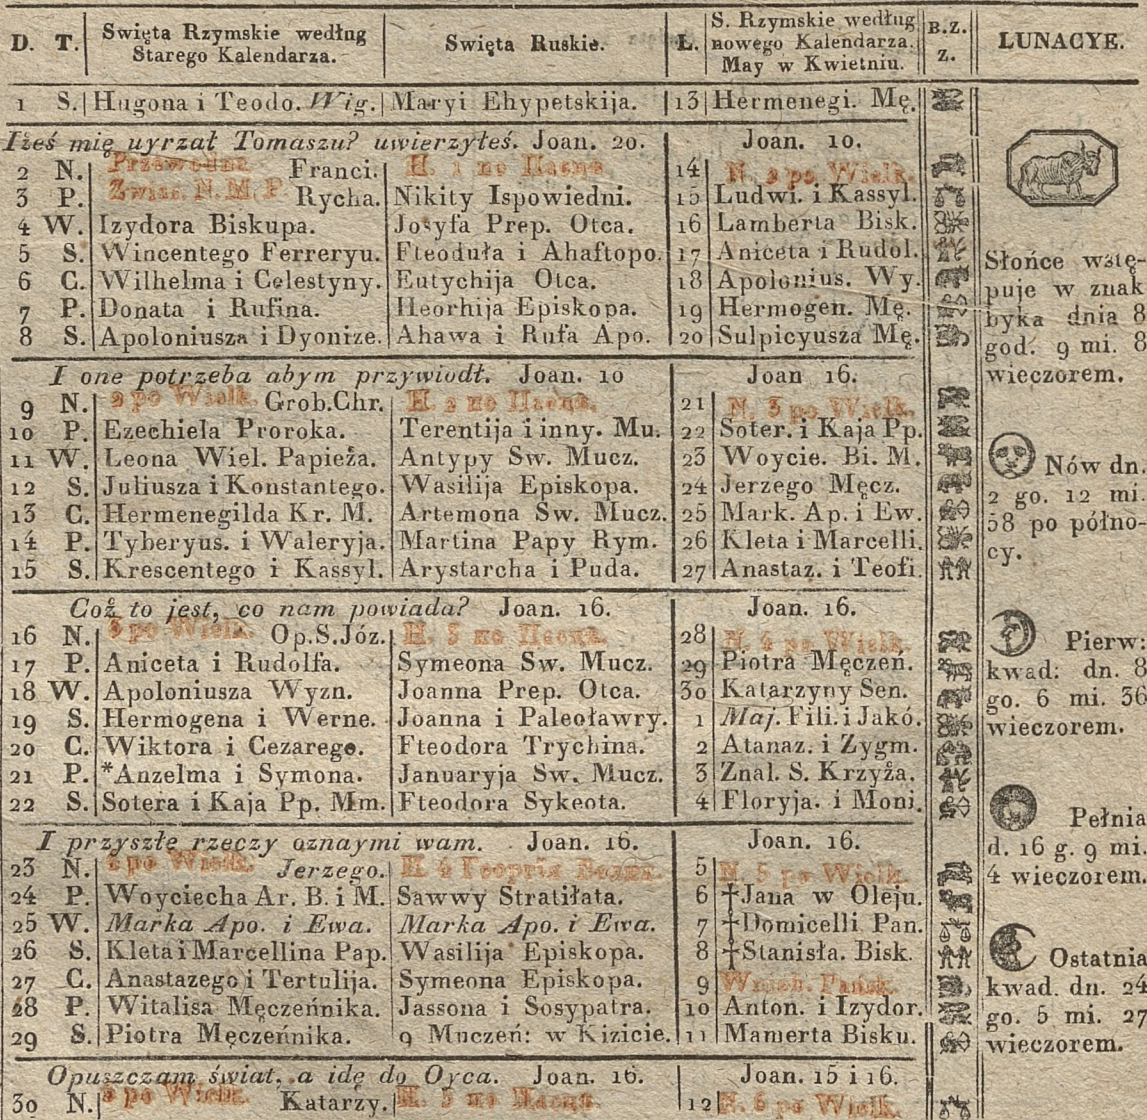 D. T. Swięta Rzymskie według Starego Kalendarza. Swięta Ruskie. L. S. Rzymskie według nowego Kalendarza. May w Kwietniu. B.Z. Z. LUNACYE.
1 S. Hugona i Teodo. Wig. Maryi Ehypetskija. 13 Hermenegi. Mę.
Iżeś mię uyrzał Tomaszu? uwierzyłeś. Joan. 20. Joan. 10.
2 N. Przewodna Franci. H. 1 no 14 N. 2 po Wielk.
3 P. Zwias. N. M. P. Rycha. Nikity Ispowiedni. 15 Ludwi. i Kassyl.
4 W. Izydora Biskupa. Josyfa Prep. Otca. 16 Lamberta Bisk.
5 S. Wincentego Ferreryu. Fteoduła i Ahaftopo. 17 Aniceta i Rudol.
6 C. Wilhelma i Celestyny. Eutychija Otca. 18 Apolonius. Wy.
7 P. Donata i Rufina. Heorhija Episkopa. 19 Hermogen. Mę.
8 S. Apoloniusza i Dyonize. Ahawa i Rufa Apo. 20 Sulpicyusza Mę.
I one potrzeba abym przywiodł. Joan. 10 Joan 16.
9 N. 2 po Wielk. Grob.Chr. H. 2 no 21 N. 3 po Wielk.
10 P. Ezechiela Proroka. Terentija i inny. Mu. 22 Soter. i Kaja Pp.
11 W. Leona Wiel. Papieża. Antypy Sw. Mucz. 23 Woycie. Bi. M.
12 S. Juliusza i Konstantego. Wasilija Episkopa. 24 Jerzego Męcz.
13 C. Hermenegilda Kr. M. Artemona Sw. Mucz. 25 Mark. Ap. i Ew.
14 P. Tyberyus. i Waleryja. Martina Papy Rym. 26 Kleta i Marcelli.
15 S. Krescentego i Kassyl. Arystarcha i Puda. 27 Anastaz. i Teofi.
Coż to jest, co nam powiada? Joan. 16. Joan. 16.
16 N. 3 po Wielk. Op.S.Józ. H. 3 no 28 N. 4 po Wielk.
17 P. Aniceta i Rudolfa. Symeona Sw. Mucz. 29 Piotra Męczeń.
18 W. Apoloniusza Wyzn. Joanna Prep. Otca. 30 Katarzyny Sen.
19 S. Hermogena i Werne. Joanna i Paleoławry. 1 Maj. Fili. i Jakó.
20 C. Wiktora i Cezarego. Fteodora Trychina. 2 Atanaz. i Zygm.
21 P. *Anzelma i Symona. Januaryja Sw. Mucz. 3 Znal. S. Krzyża.
22 S. Sotera i Kaja Pp. Mm. Fteodora Sykeota. 4 Floryja. i Moni.
I przyszłe rzeczy oznaymi wam. Joan. 16. Joan. 16.
23 N. 4 po Wielk. Jerzego. H 4 5 N. 5 po Wielk.
24 P. Woyciecha Ar. B. i M. Sawwy Stratiłata. 6 †Jana w Oleju.
25 W. Marka Apo. i Ewa. Marka Apo. i Ewa. 7 †Domicelli Pan.
26 S. Kleta i Marcellina Pap. Wasilija Episkopa. 8 †Stanisła. Bisk.
27 C. Anastazego i Tertulija. Symeona Episkopa. 9 Wnieb. Pańsk.
28 P. Witalisa Męczeńnika. Jassona i Sosypatra. 10 Anton. i Izydor.
29 S. Piotra Męczeńnika. 9 Muczeń: w Kizicie. 11 Mamerta Bisku.
Opuszczam świat, a idę do Oyca. Joan. 16. Joan. 15 i 16.
30 N. 5 po Wielk. Katarzy. H. 5 no 12 N. 6 po Wielk.
Słońce wstę-
puje w znak
byka dnia 8
god. 9 mi. 8
wieczorem.
Nów dn.
2 go. 12 mi.
58 po półno-
cy.
Pierw:
kwad: dn. 8
go. 6 mi. 36
wieczorem.
Pełnia
d. 16 g. 9 mi.
4 wieczorem.
Ostatnia
kwad. dn. 24
go. 5 mi. 27
wieczorem.